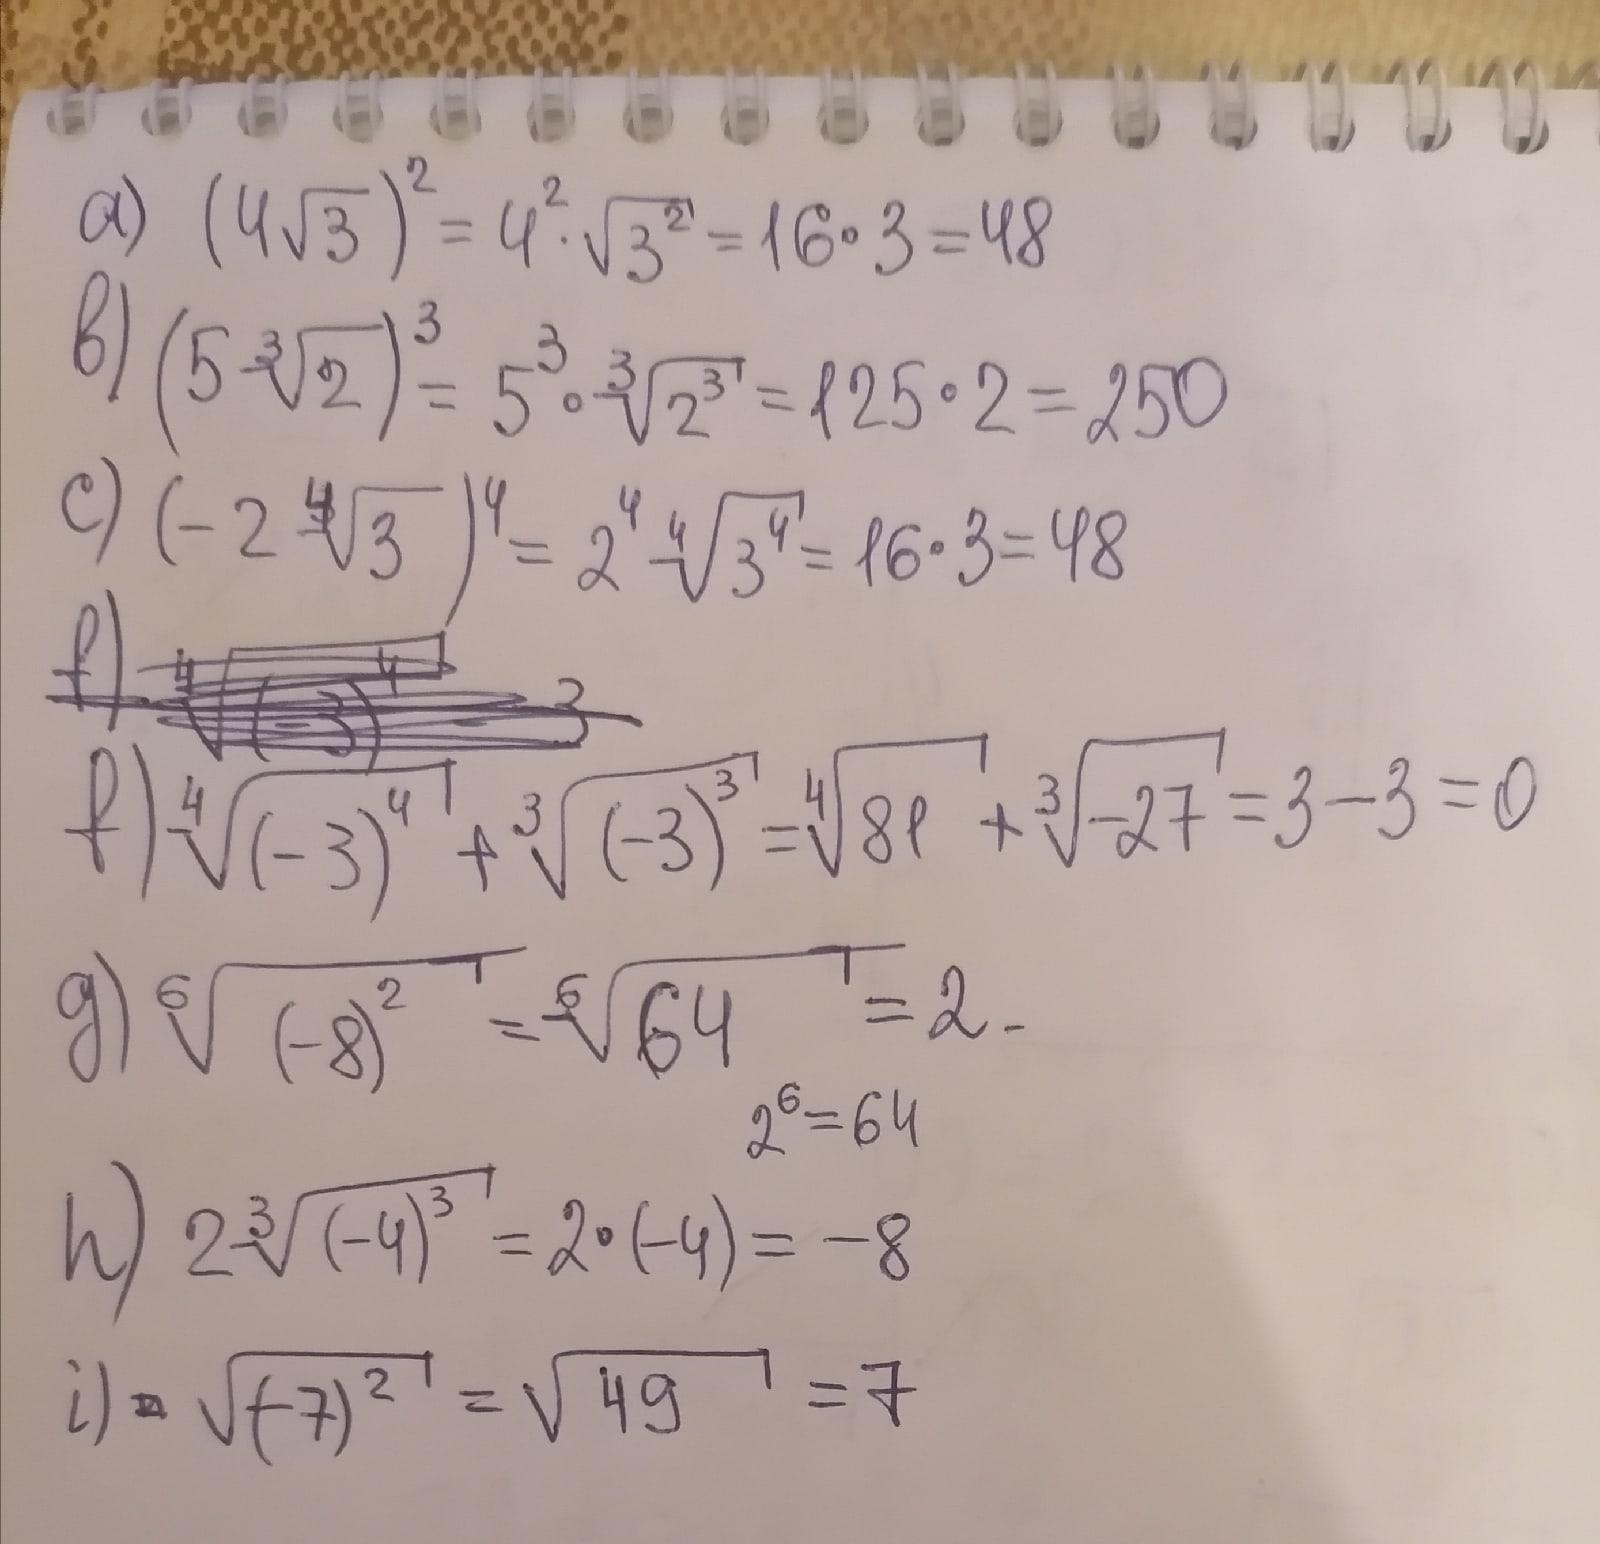 a) (4√3)² = 4² · √3² = 16 · 3 = 48
b) (5 ∛2)³ = 5³ · ∛2³ = 125 · 2 = 250
c) (-2 ∜3)⁴ = 2⁴ ∜3⁴ = 16 · 3 = 48
f) ∜(-3)⁴ + ∛(-3)³ = ∜81 + ∛-27 = 3 - 3 = 0
g) ⁶√(-8)² = ⁶√64 = 2 -
2⁶ = 64
h) 2 ∛(-4)³ = 2 · (-4) = -8
i) √(-7)² = √49 = 7